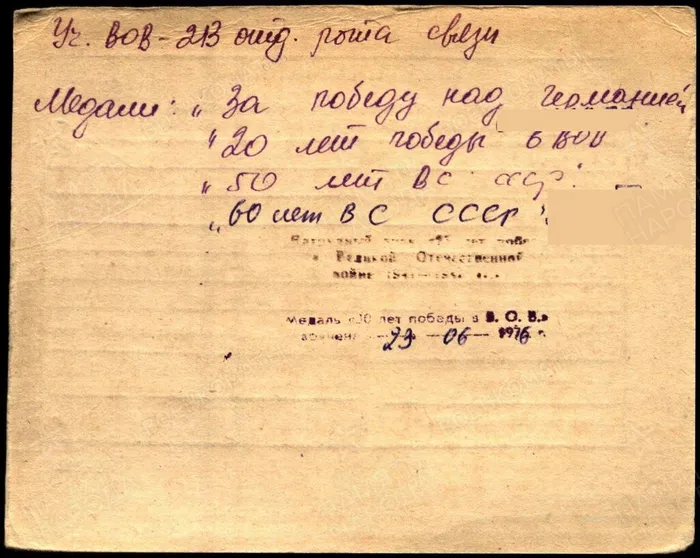 Уч. ВОВ - 213 отд. рота связи
Медали: „За победу над Германией
"20 лет победы в ВОВ
„50 лет ВС СССР"
„60 лет ВС СССР"
Нагрудный знак «25 лет побе
в Великой Отечественной
войне
Медаль «30 лет победы в В. О. В.»
вручена 23 - 06 - 1976 г.